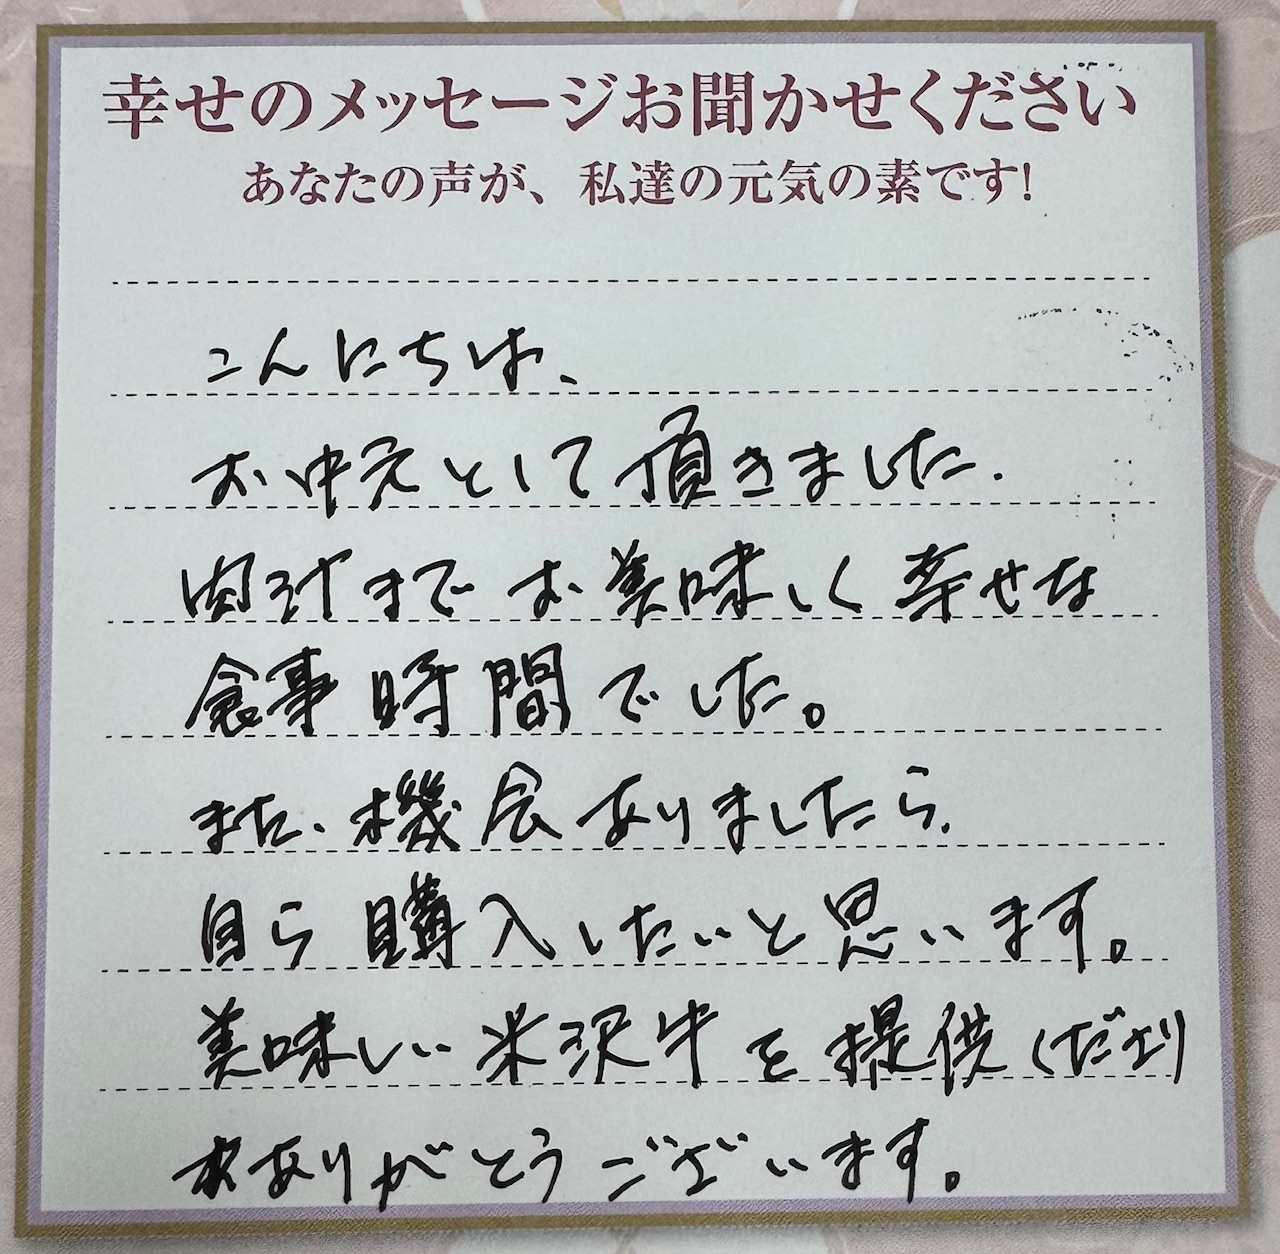 幸せのメッセージお聞かせください
あなたの声が、私達の元気の素です!
こんにちは、
お中元として頂きました.
肉汁までお美味しく幸せな
食事時間でした。
また、機会ありましたら、
自ら購入したいと思います。
美味しい米沢牛を提供くださり
ありがとうございます。